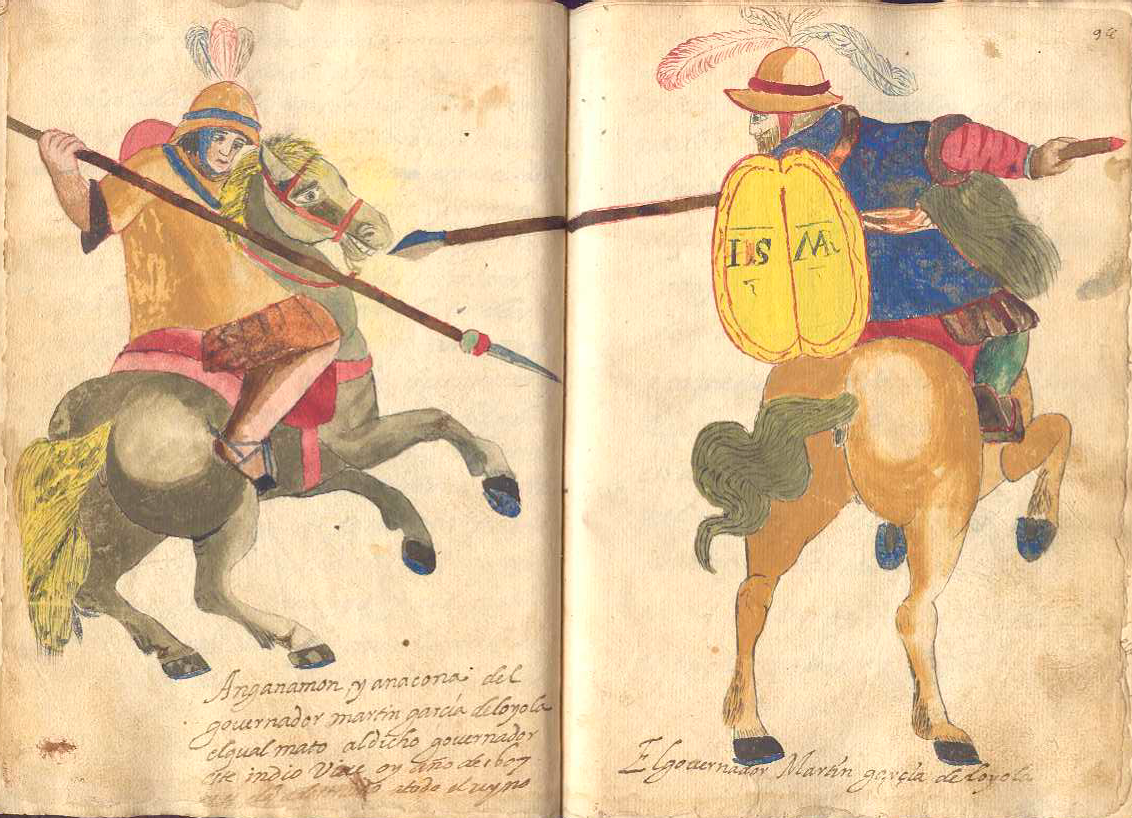 94
IHS
MA
Anganamon yanacona del
governador martin garcia de loyola
el qual mato al dicho governador
este indio Vive oy año de 1607
todo el reyno
El governador Martin garcia de loyola